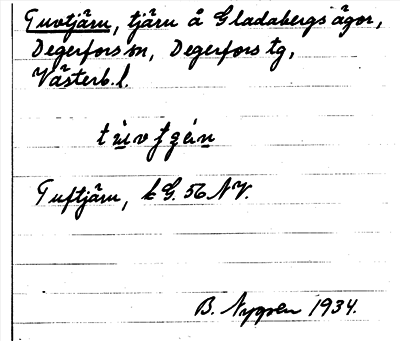 Tuvtjärn, tjärn å Gladabergs ägor,
Degerfors sn, Degerfors tg,
Västerb. l.
Tuftjärn, k G. 56 NV.
B. Nygren 1934.